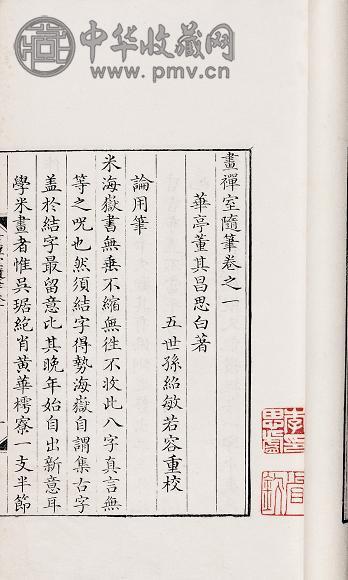 中华收藏网
www.pmv.cn
畫禪室隨筆卷之一
華亭董其昌思白著
五世孫紹敏若容重校
論用筆
米海嶽書無垂不縮無往不收此八字真言無
等之呪也然須結字得勢海嶽自謂集古字
盖於結字最留意比其晚年始自出新意耳
學米畫者惟吳琚絕肖黄華樗寮一支半節